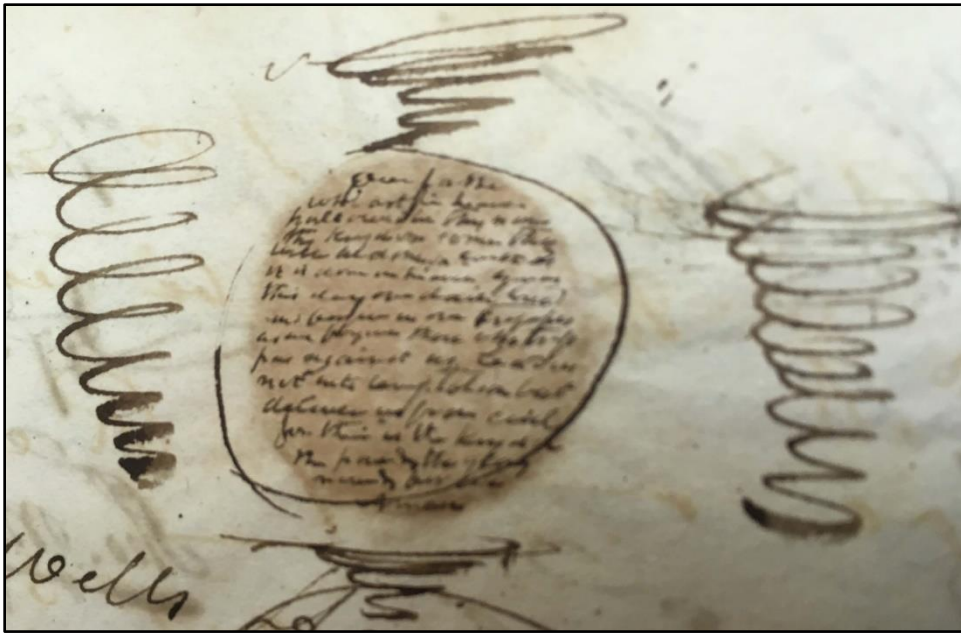 Our father
which art in heaven
hallowed be thy name
thy kingdom come thy
will be done in earth as
it is done in heaven give us
this day our daily bread
and forgive us our trespasses
as we forgive those who tres
pas against us lead us
not into temptation but
deliver us from evil
for thine is the kingd
the power & the glory
Amen
Wells